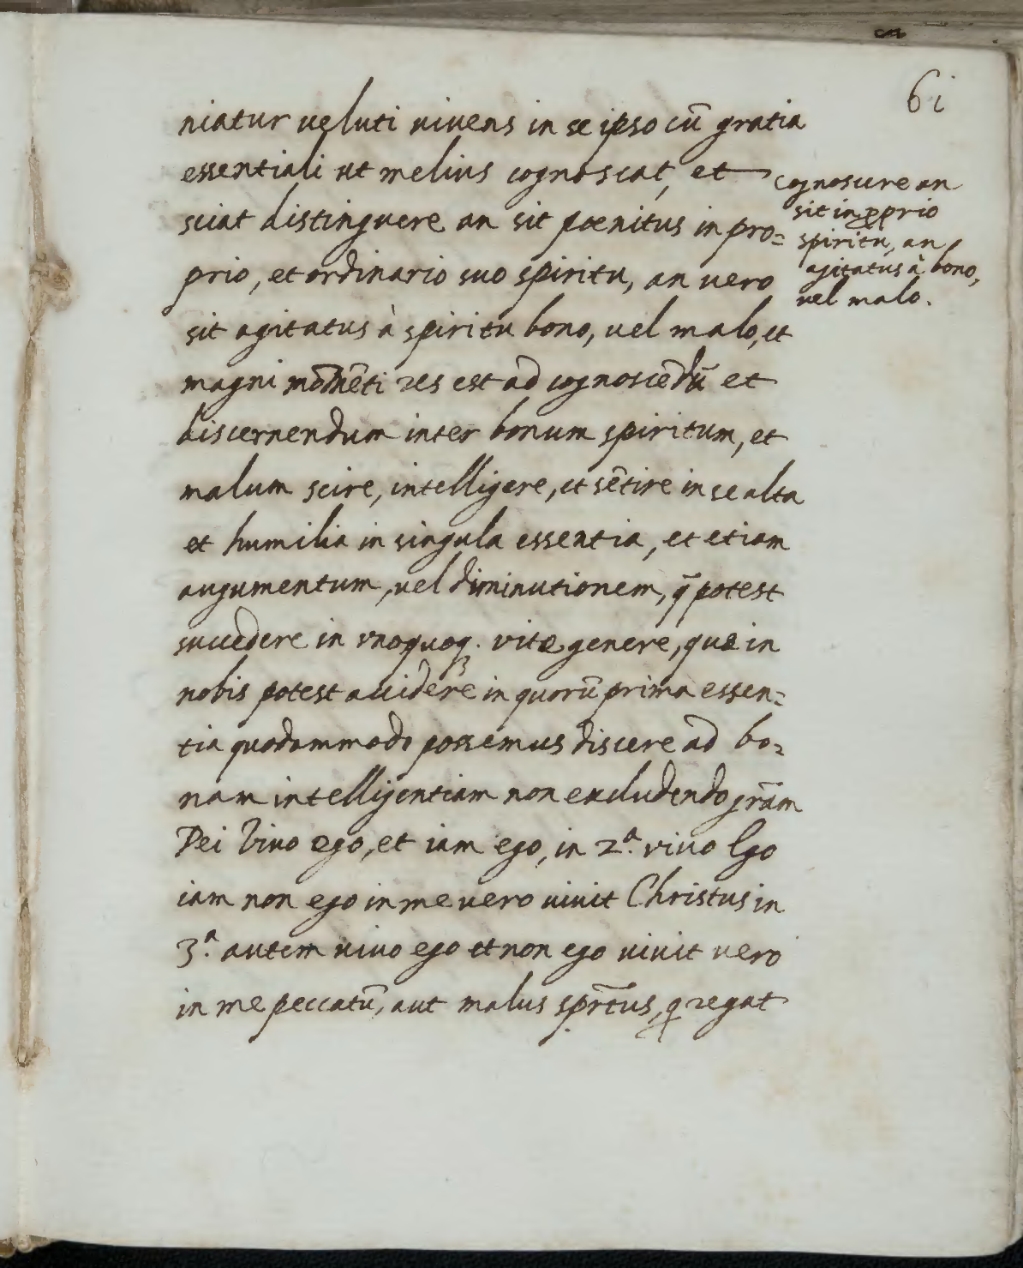 61
niatur veluti vivens in se ipso cū gratia
essentiali ut melius cognoscat, et
sciat distinguere an sit poenitus in pro=
prio, et ordinario suo spiritu, an vero
sit agitatus à spiritu bono, vel malo, et
magni momēti res est ad cognoscēdū et
discernendum inter bonum spiritum, et
malum scire, intelligere, et sētire in se alta
et humilia in singula essentia, et etiam
augumentum, vel diminutionem, q̄ potest
succedere in unoquoq. vitæ genere, quæ in
nobis potest accidere in quorū prima essen=
tia quodammodo possemus discere ad bo=
nam intelligentiam non excludendo grām
Dei Vivo ego, et iam ego, in 2.ª vivo Ego
iam non ego in me vero vivit Christus in
3.ª autem vivo ego et non ego vivit vero
in me peccatū, aut malus spr̄tus, q regat
cognoscere an
sit in ꝓprio
spiritu, an
agitatus à bono,
vel malo.